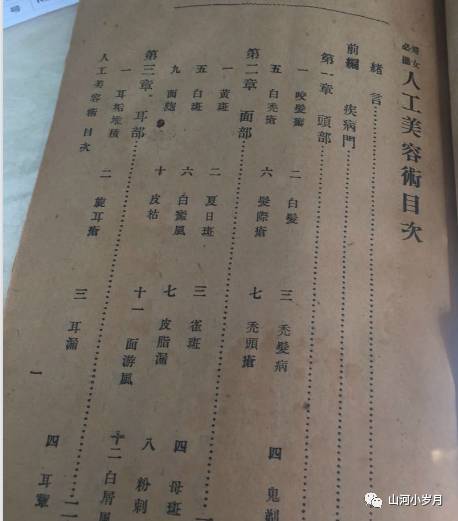 婦女必 人工美容術目次
緒言
前編 疾病門
第一章 頭部
一 咬髮癬 二 白髮 三 禿髮病 四 鬼剃
五 白禿瘡 六 髮際瘡 七 禿頭瘡
第二章 面部
一 黃斑 二 夏日斑 三 雀斑 四 母斑
五 白斑 六 白蜜風 七 皮脂漏 八 粉刺
九 面皰 十 皮枯 十一 面游風 十二 白屑風
第三章 耳部
一 耳垢堆積 二 旋耳瘡 三 耳漏 四 耳
人工美容術 目次 一
山河小岁月